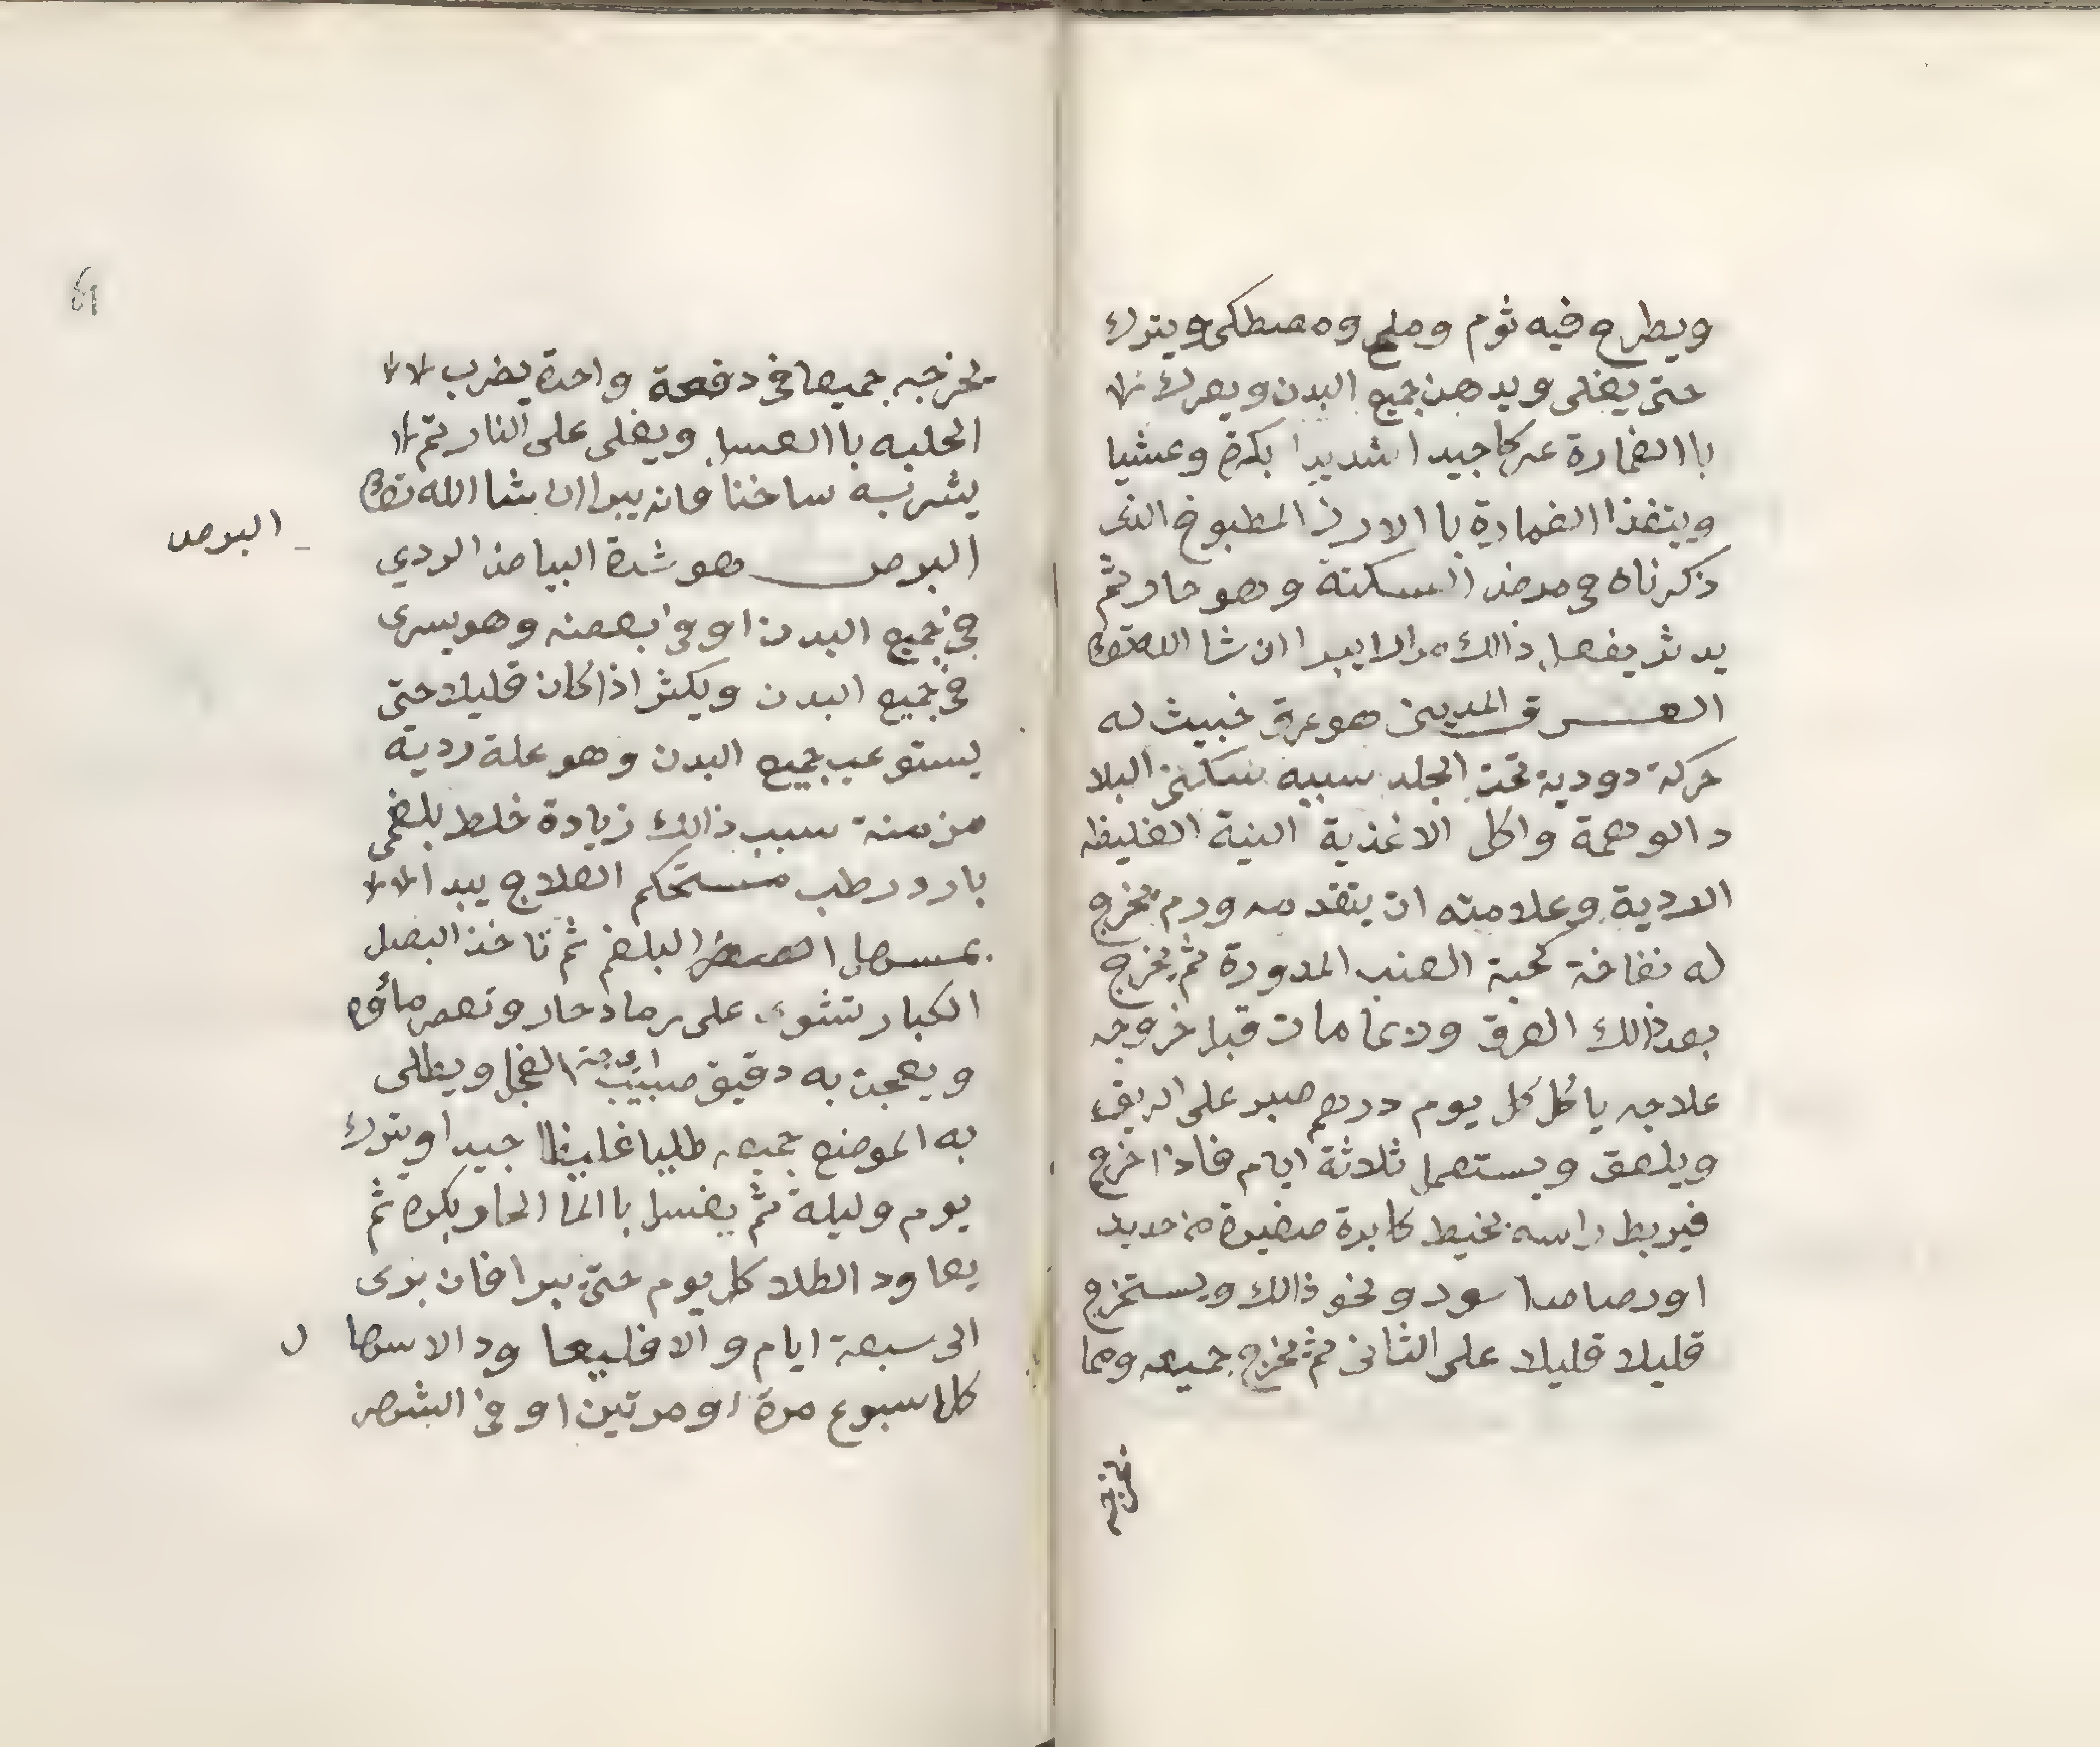 ويطرح فيه ثوم وملح ومصطكى ويترك
حتى يغلى ويدهن جميع البدن ويعرك
با الغمارة عركا جيدا شديدا بكرة وعشيا
ويتغذا الغمادية با الارز المطبوخ الذى
ذكرناه في مرض السكتة وهو حار ثم
يدثر يفعل ذالك مرارا يبرا ان شا الله تعالى
العرق المديني هو عرق خبيث له
حركة دودية تحت الجلد سببه سكنى البلا
د الوحمة واكل الاغذية النية الغليظه
الردية وعلامته ان يتقدمه ورم يخرج
له نفاخة كحبة العنب المدورة ثم يخرج
بعد ذالك العرق وربما مات قبل خروجه
علاجه ياكل كل يوم درهم صبر على الريق
ويلعق ويستعمل ثلاثة ايام فاذا خرج
فيربط راسه بخيط كابرة صغيرة من حديد
او رصاص اسود ونحو ذالك ويستخرج
قليلا قليلا على الثانى ثم يخرج جميعه ومما
يخرجه
يخرجه جميعا في دفعة واحدة يضرب
الحلبه با العسل ويغلى على النار ثم
يشربه ساخنا فانه يبرا ان شا الله تعالى
البرص
البرص هو شدة البياض الردي
في جميع البدن او في بعضه وهو يسرى
في جميع البدن ويكثر اذا كان قليلا حتى
يستوعب جميع البدن وهو علة ردية
مزمنة سبب ذالك زيادة خلط بلغمى
بارد رطب مستحكم العلاج يبدا
بمسهل البلغم ثم تاخذ البصل
الكبار تشوى على رماد حار وتعصر ماؤه
ويعجن به دقيق الفجل ويطلى
به الموضع جميعه طليا غليظا جيدا ويترك
يوم وليلة ثم يغسل با الما الحار بكره ثم
يعاود الطلا كل يوم حتى يبرا فان برى
الى سبعة ايام والا فليعاود الاسهال
كل اسبوع مرة او مرتين او في الشهر